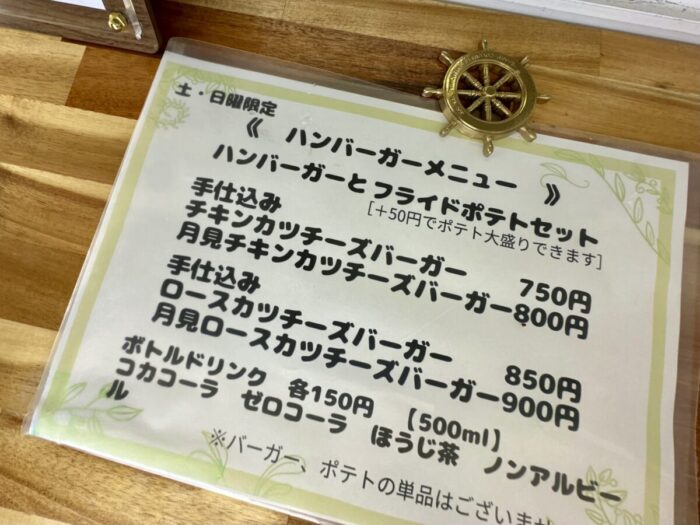 土・日曜限定
《 ハンバーガーメニュー 》
ハンバーガーとフライドポテトセット
[＋50円でポテト大盛りできます]
手仕込み
チキンカツチーズバーガー 750円
月見チキンカツチーズバーガー800円
手仕込み
ロースカツチーズバーガー 850円
月見ロースカツチーズバーガー900円
ボトルドリンク 各150円 【500ml】
コカコーラ ゼロコーラ ほうじ茶 ノンアルビー
ル
※バーガー、ポテトの単品はございませ